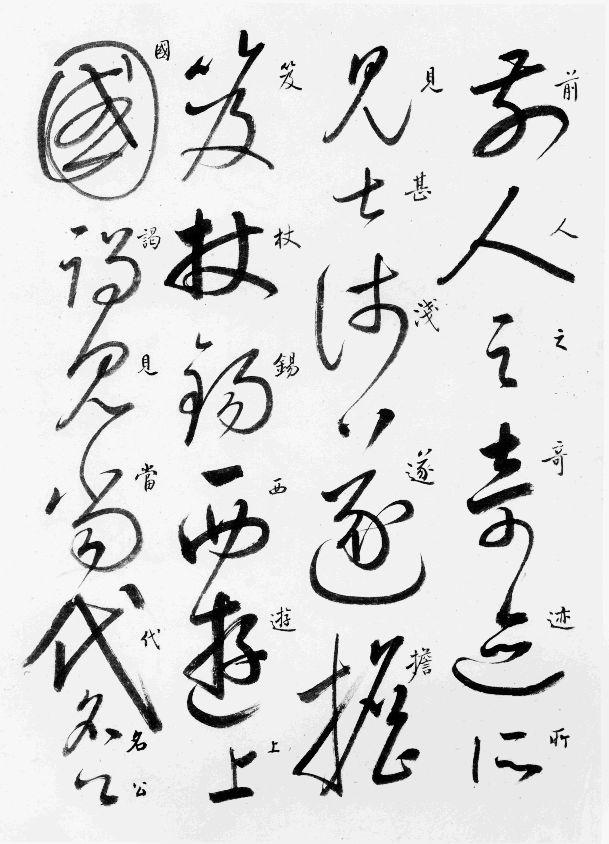 前人之奇迹所
見甚淺遂擔
笈杖錫西遊上
國謁見當代名公